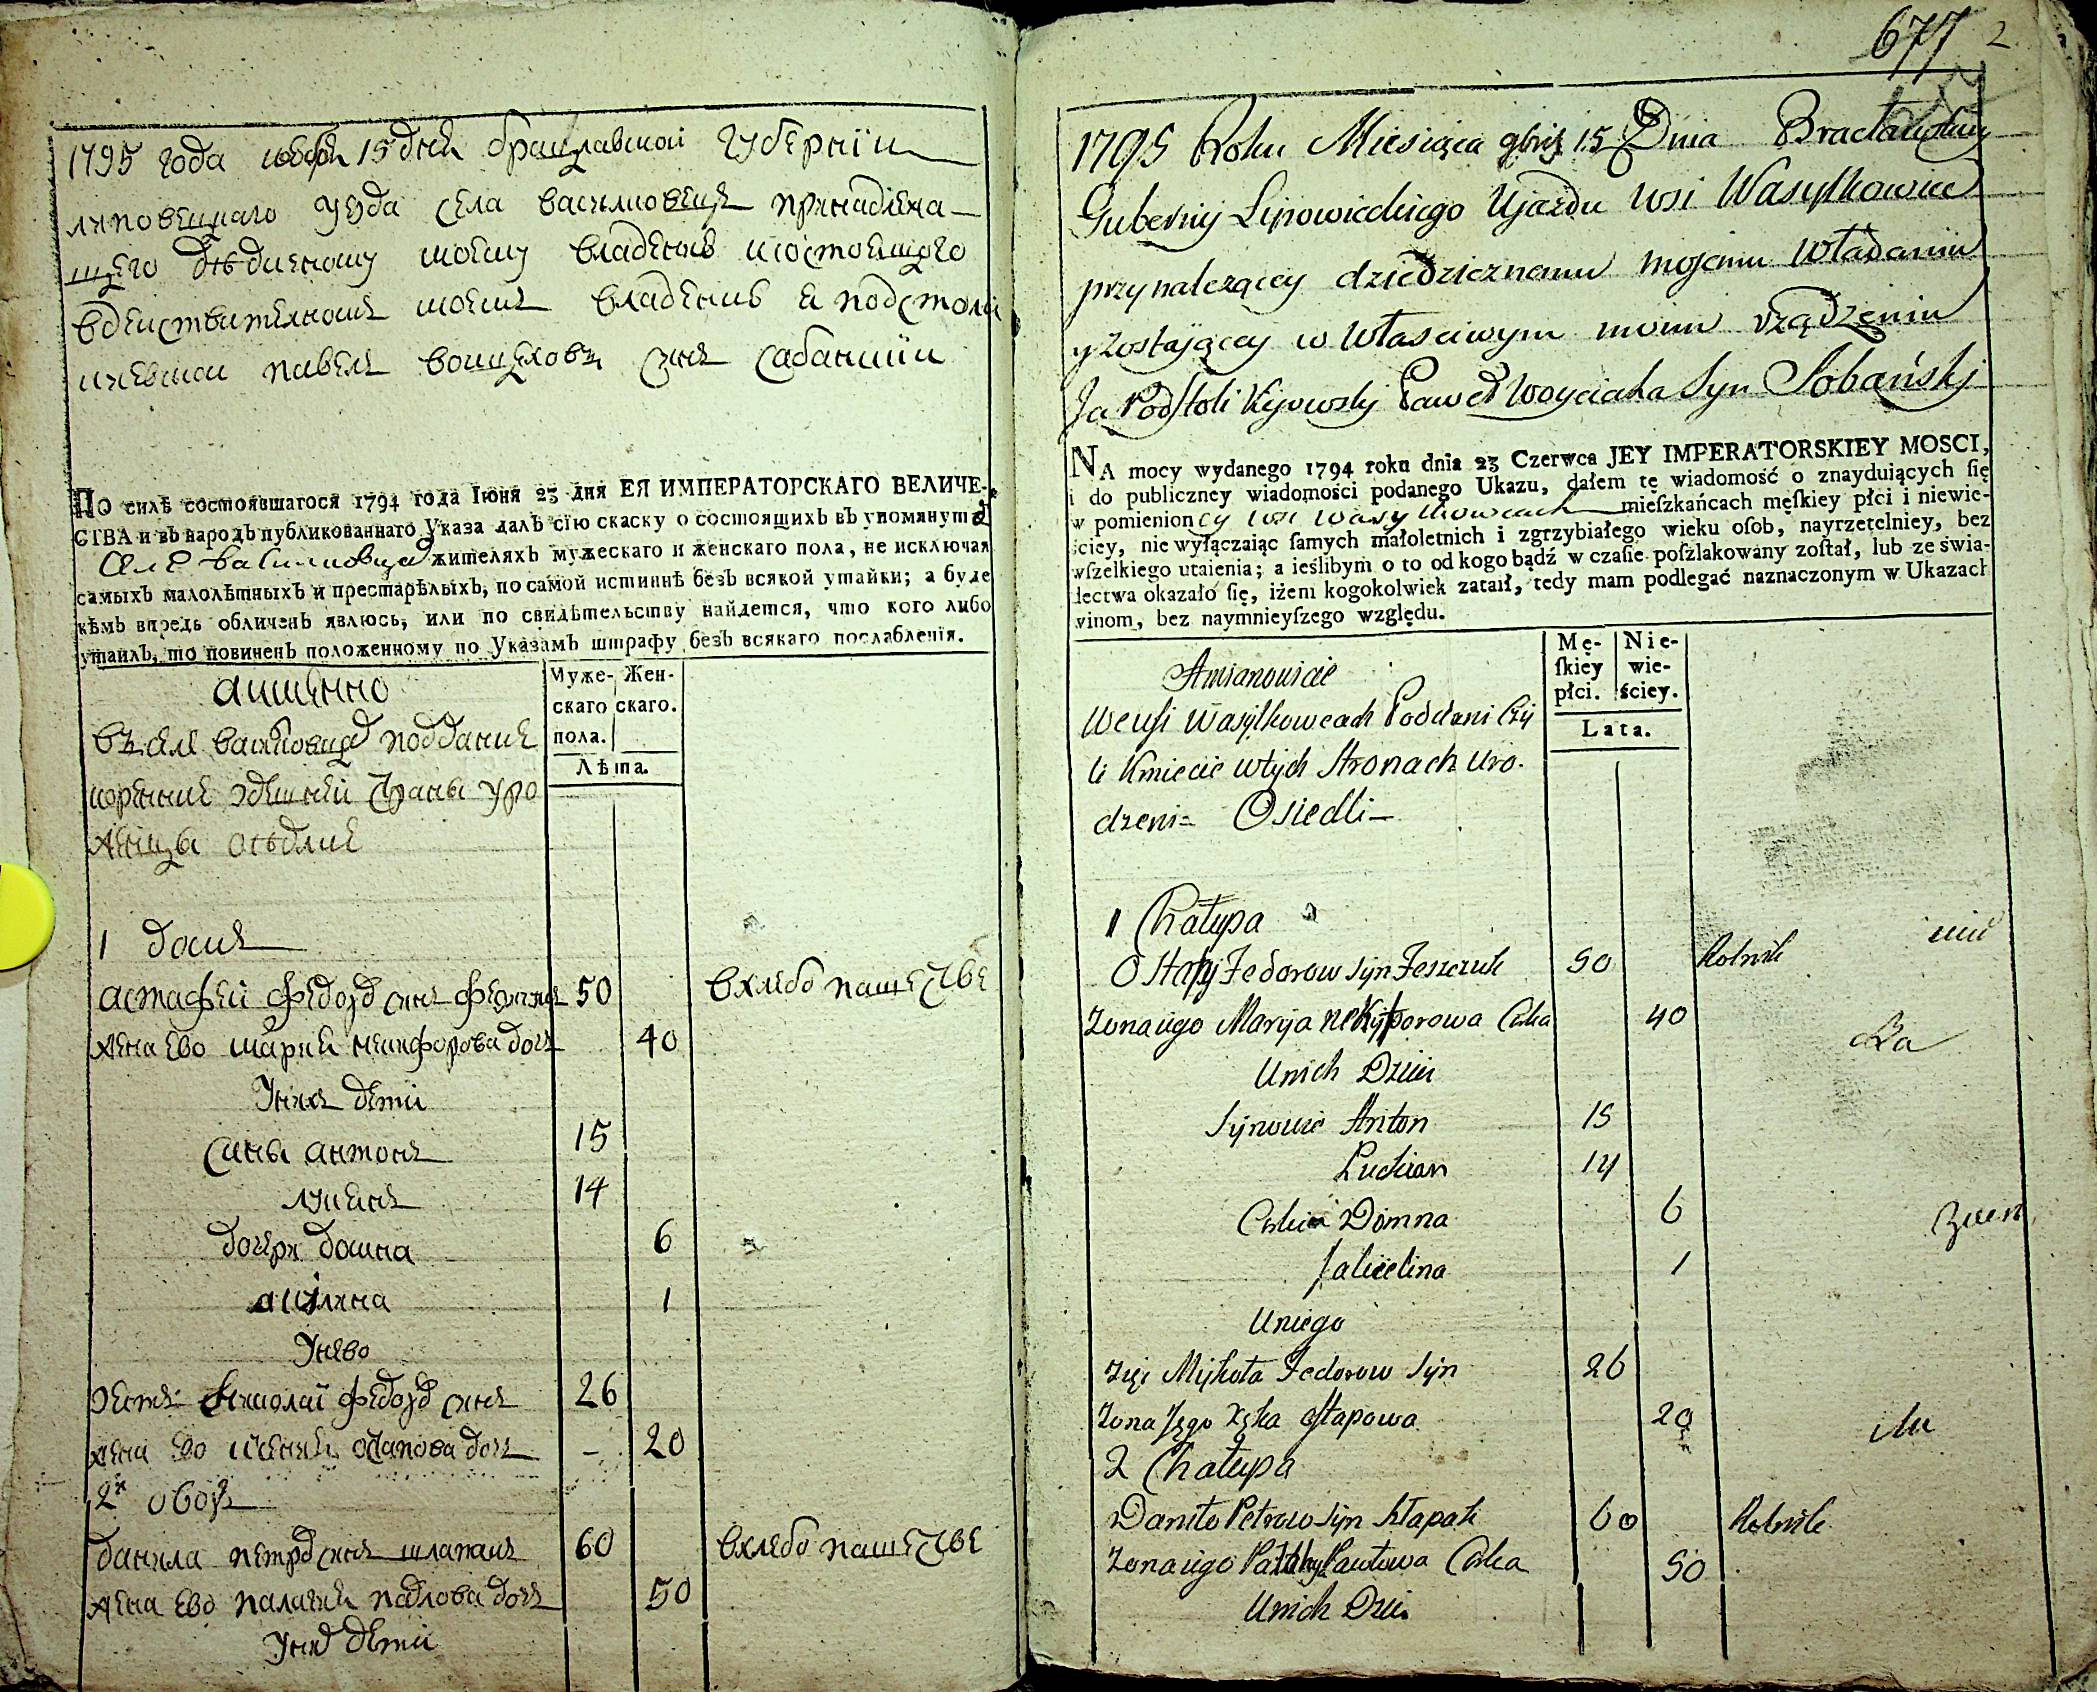 1795 года 15 дня брацлавской губернїи
липовецкаго уезда села василковецъ принадлежа-
щего моему владению и состоящего
вдействителномъ моемъ владении я подстоли
киевской павелъ войцеховъ снъ сабанскїи
ПО силѣ состоявшагося 1794 года Іюня 23 дня ЕЯ ИМПЕРАТОРСКАГО ВЕЛИЧЕ-
СТВА и въ народъ публикованнаго Указа далъ сїю скаску о состоящихъ въ упомянутѡ
селе василковцах жителяхъ мужескаго и женскаго пола, не исключая
самыхъ малолѣтныхъ и престарѣлыхъ, по самой истиннѣ безъ всякой утайки; а буде
кѣмъ впредь обличенъ явлюсь, или по свидѣтельству найдется, что кого либо
утаилъ, то повиненъ положенному по Указамъ штрафу безъ всякаго послабленія.
аимянно
Муже- Жен-
скаго скаго.
пола.
Лѣта.
въ селе василковцах поддание
коренние здешней страны уро
женцы оседлие
1 домъ
астафей федоров снъ 50 вхлебопашестве
жена ево мария никифорова доч 40
у них дети
сины антонъ 15
лукянъ 14
дочери домна 6
акилина 1
у него
зять николаї федоров снъ 26
жена ево ксения остапова доч – 20
2й двор
данила петров снъ шлапакъ 60 вхлебопашестве
жена ево палагия павлова доч 50
у них дети
677 2
1795 Roku Miesiąca 9bris 15 Dnia Bracławskiey
Gubernij Lipowieckiego Ujazdu Wsi Wasylkowiec
przynależącey dziedzicznemu mojemu Władaniu
y zostającey w Własciwym moim rządzeniu
Ja Podstoli Kijowsky Paweł Woyciecha Syn Sobański
NA mocy wydanego 1794 roku dnia 23 Czerwca JEY IMPERATORSKIEY MOSCI,
i do publiczney wiadomości podanego Ukazu, dałem tę wiadomość o znayduiących ſię
w pomienioncy wsi Wasylkowcach mieſzkańcach męſkiey płci i niewie-
ściey, nie wyłączaiąc ſamych małoletnich i zgrzybiałego wieku oſob, nayrzetelniey, bez
wſzelkiego utaienia; a ieślibym o to od kogo bądź w czaſie poſzlakowany zoſtał, lub ze świa-
dectwa okazało ſię, iżem kogokolwiek zataił, tedy mam podlegać naznaczonym w Ukazach
vinom, bez naymnieyſzego względu.
Amianowicie
Mę- Nie-
ſkiey wie-
płci. ściey.
Lata.
We wsi Wasylkowcach Poddani Czy
li Kmiecie w tych Stronach Uro-
dzeni = Osiedli –
1 Chałupa
Ostafij Fedorow syn Feszczuk 50 Rolnik
Zona iego Maryja Nekyporowa Córka 40
U nich Dzieci
Synowie Anton 15
Lucian 14
Córki Domna 6
Jalicelina 1
U niego
Zięć Mykoła Fedorow Syn 26
Zona Jego Xska Ostapowa 20
2 Chałupa
Daniło Petrow Syn Szłapak 60 Rolnik
Zona iego Pawłowa Córka 50
U nich Dzieci